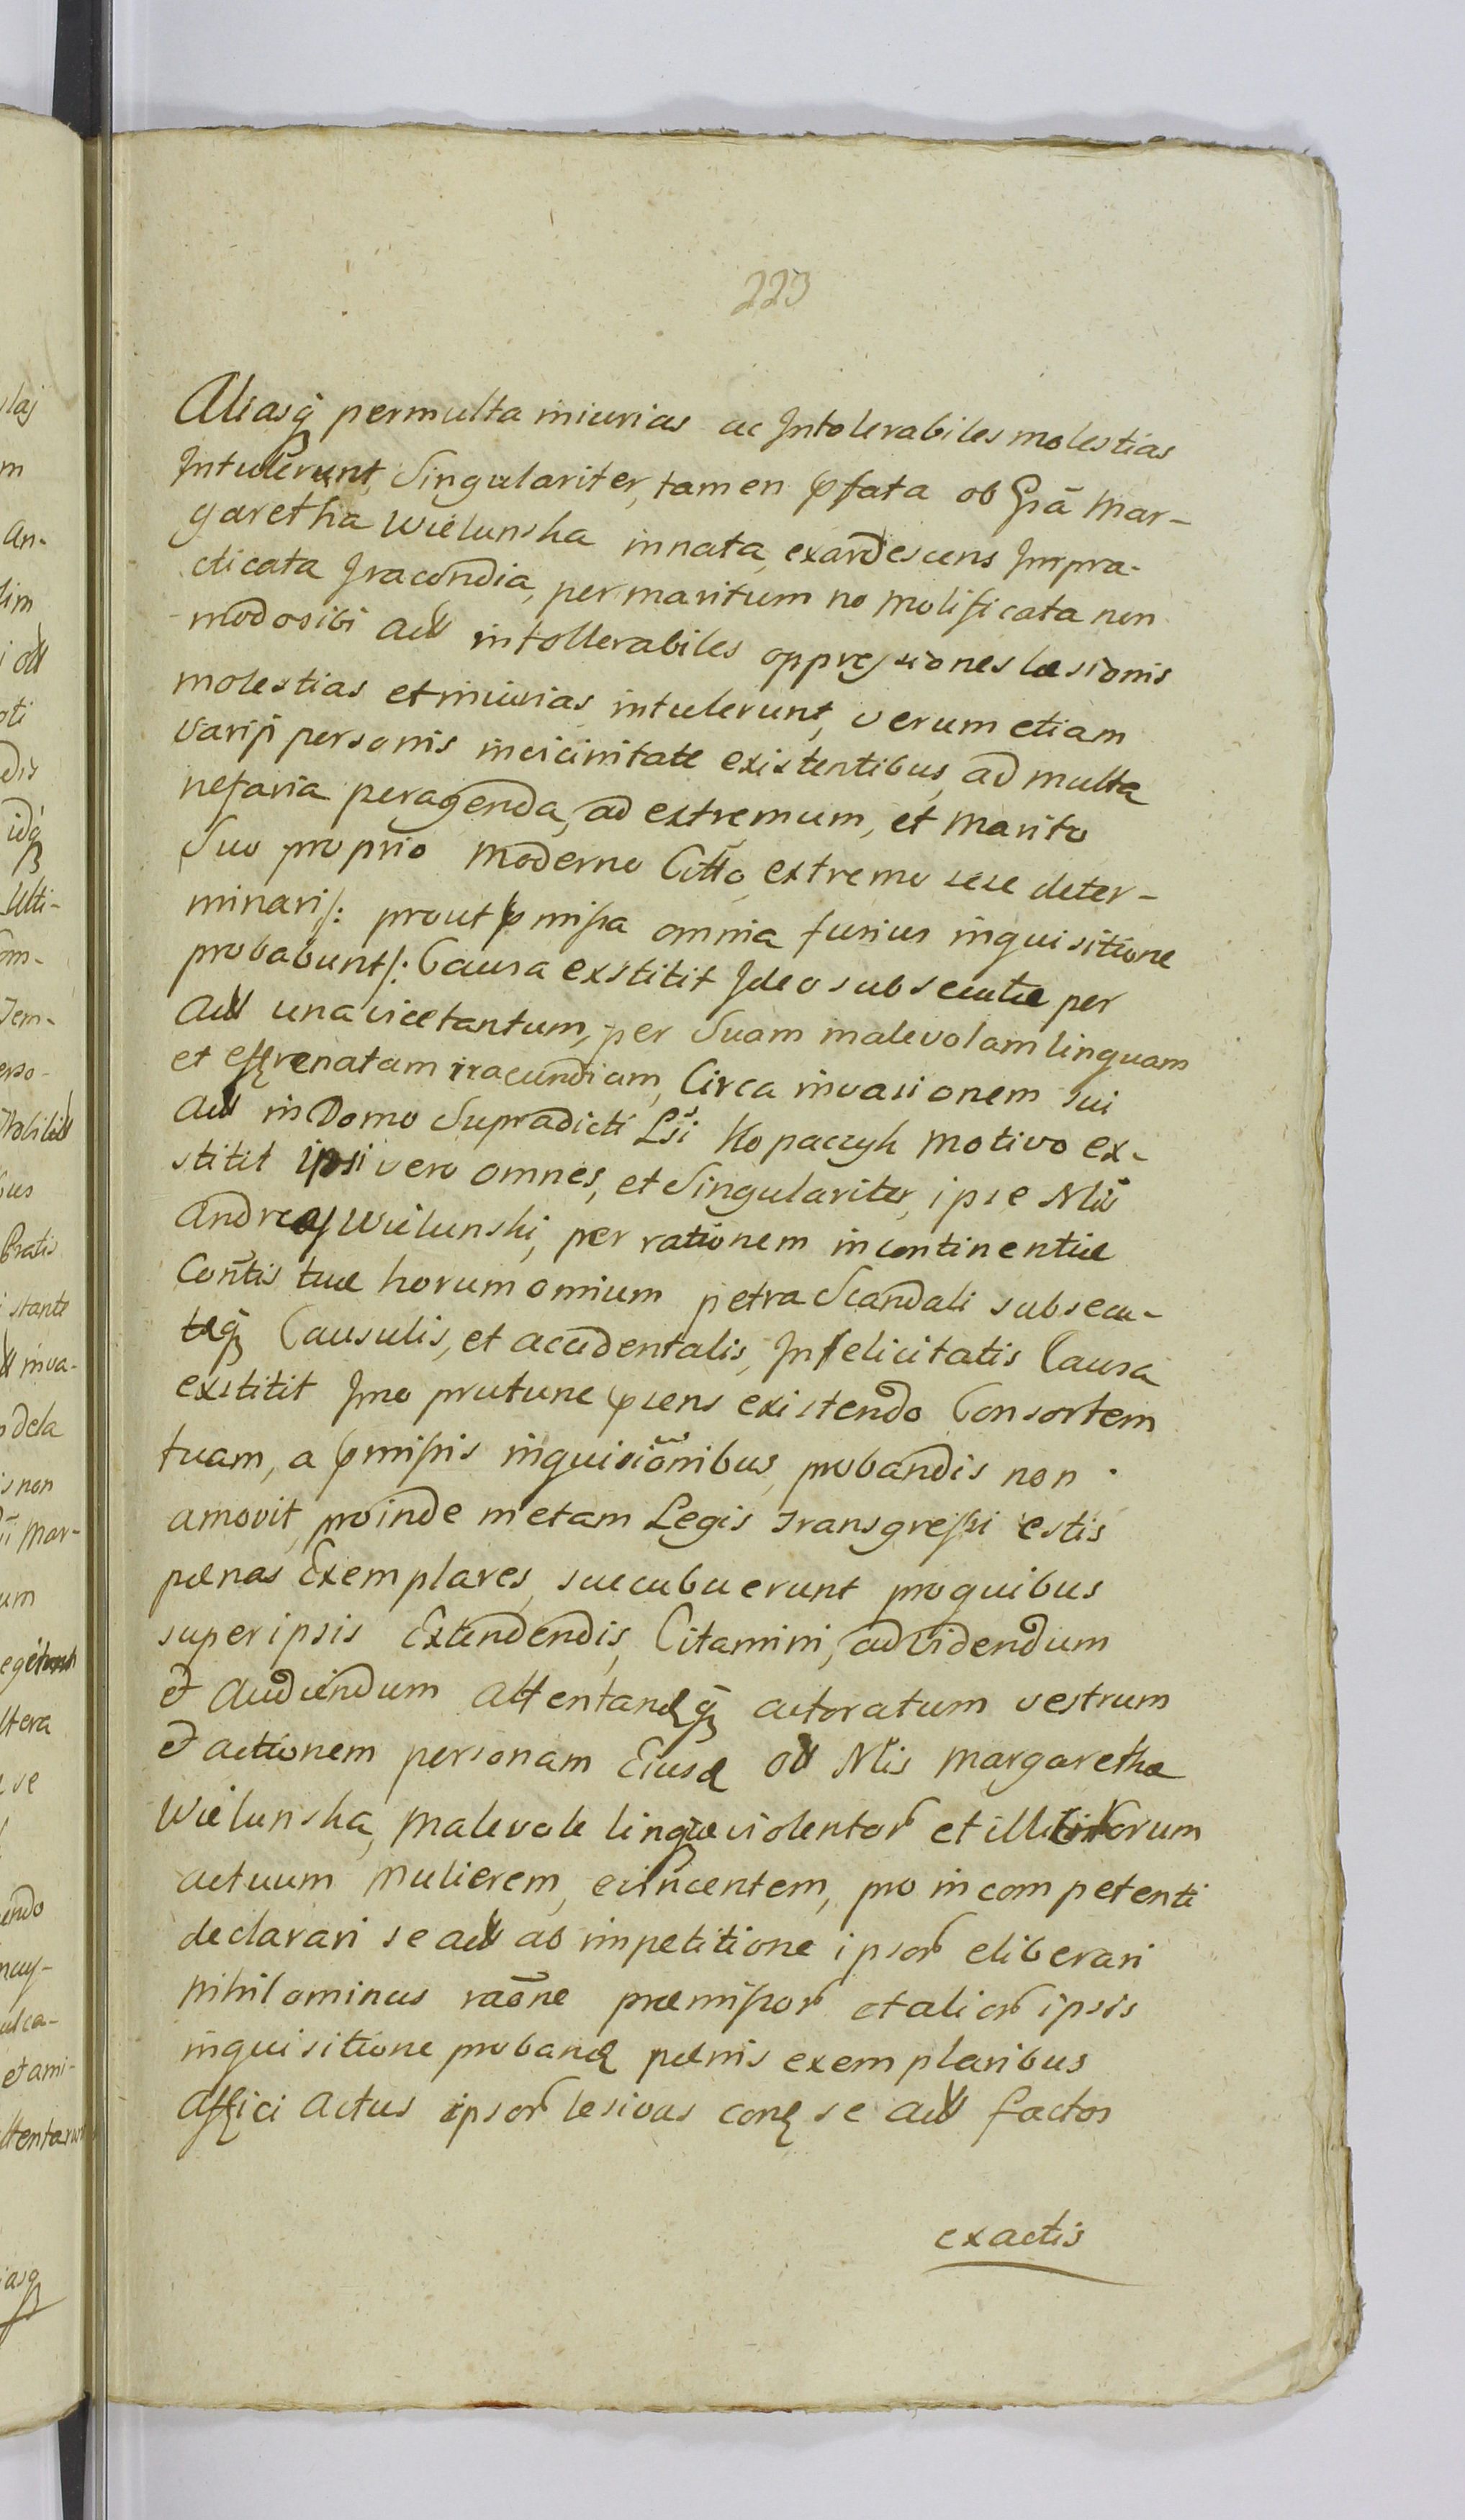 223
Aliasq permulta iniurias ac Intolerabiles molestias
Intulerunt, Singulariter, tamen pfata ob Gnā Mar-
garetha Wielunska innata, exardescens Impra-
cticata Iracondia, per maritum no Molificata non
modo sibi Act intollerabiles oppressiones læsionis
molestias et iniurias intulerunt, verum etiam
varijs personis invicinitate existentibus, ad multa
nefaria peragenda, ad extremum, et Marito
Suo proprio Moderno Citto, extremo sese deter-
minari /: prout pmissa omnia fusius inquisitione
probabunt /: Causa exstitit Ideo subsecutæ per
Act una vice tantum, per Suam malevolam linguam
et effrenatam iracundiam, Circa invasionem sui
Act in Domo Supradicti Lsi Kopaczyk motivo ex-
stitit ipsi vero omnes, et Singulariter, ipse Nlis
Andreas Wielunski, per rationem incontinentiæ
Contis tuæ horum omium petra Scandali subsecu-
teq Causulis, et accidentalis, Infelicitatis Causa
exstitit Imo prutunc psens existendo Consortem
tuam, a pmissis inquisiōnibus, probandis non
amovit, proinde metam Legis transgressi estis
pœnas Exemplares, succubuerunt pro quibus
super ipsis Extendendis, Citamini, ad Videndum
et Audiendum attentandq actoratum vestrum
et actionem personam Eiusd ob Nlis Margaretha
Wielunska, Malevole lingue violentor et illicitorum
actuum Mulierem, evincentem, pro incompetenti
declarari se act ab impetitione ipsor eliberari
Nihilominus raōne præmissor et alior ipsis
inquisitione proband pœnis exemplaribus
affici Actus ipsor lesivos contr se act factos
exactis